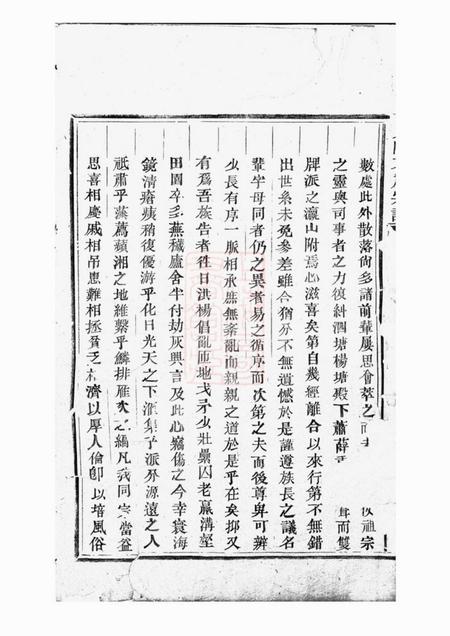 數處此外散落尙多諸前輩屡思會萃之 祖宗
之靈與司事者之力後糾泗塘楊塘殿下蕭薛 而雙
牌派之瀛山附焉心滋喜矣第自幾經離合以來行第不無錯
出世系未免參差雖合猶分不無遺憾於是謹遵族長之議名
輩字母同者仍之異者易之循序而次第之夫而後尊卑可辨
少長有序一脈相承庶無紊亂而親親之道於是乎在矣抑又
有爲吾族告者往日洪楊倡亂匝地戈矛少壯纍囚老羸溝壑
田園卒多蕪穢廬舍半付劫灰興言及此心竊傷之今幸寰海
鏡清瘡痍稍復優游乎化日光天之下 集乎派分源遠之人
祗肅乎蒸薦蘋湘之地維繫乎鱗排雁次之編凡我同宗當益
思喜相慶戚相吊患難相拯貧乏相濟以厚人倫卽以培風俗